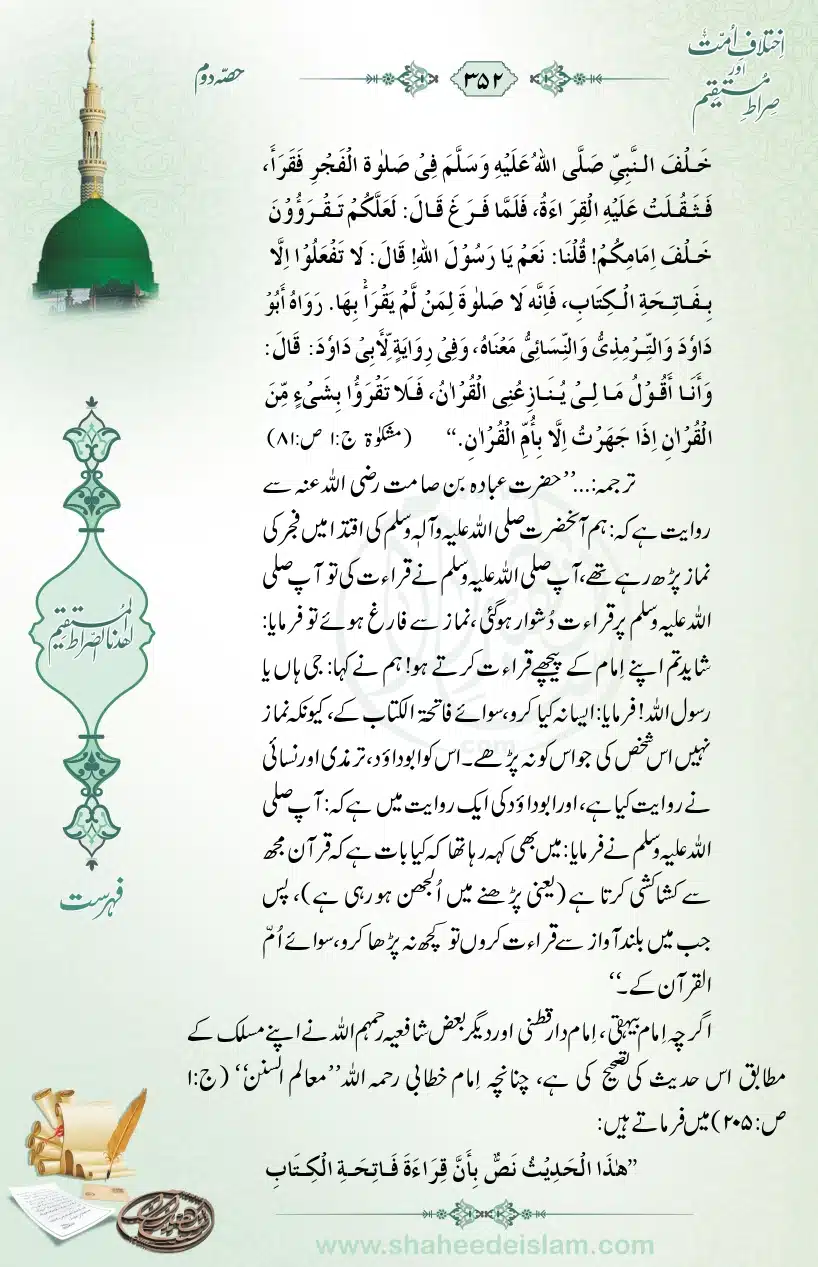 اِختلافِ اُمت
اور
صِراطِ مُستقیم
۳۵۲
حصّہ دوم
خَـلْفَ الـنَّبِيِّ صَلَّى اللهُ عَلَيْهِ وَسَلَّمَ فِىْ صَلٰوةِ الْفَجْرِ فَقَرَأَ،
فَـثَـقُـلَـتْ عَلَيْهِ الْقِرَاءَةُ، فَلَمَّا فَـرَغَ قَـالَ: لَعَلَّكُمْ تَـقْـرَؤُوْنَ
خَـلْفَ اِمَامِكُمْ! قُلْنَا: نَعَمْ يَا رَسُوْلَ اللهِ! قَالَ: لَا تَفْعَلُوْا اِلَّا
بِـفَـاتِـحَةِ الْـكِتَابِ، فَاِنَّه لَا صَلٰوةَ لِمَنْ لَّمْ يَقْرَأْ بِهَا. رَوَاهُ أَبُوْ
دَاوٗدَ وَالتِّـرْمِذِىُّ وَالنِّسَائِىُّ مَعْنَاهُ، وَفِىْ رِوَايَةٍ لِّأَبِىْ دَاوٗدَ: قَالَ:
وَأَنَـا أَقُـوْلُ مَـا لِـىْ يُـنَـازِعُنِى الْقُرْاٰنُ، فَـلَا تَقْرَؤُا بِشَىْءٍ مِّنَ
الْقُرْاٰنِ اِذَا جَهَرْتُ اِلَّا بِأُمِّ الْقُرْاٰنِ.“ (مشکوٰۃ ج:۱ ص:۸۱)
ترجمہ:...’’حضرت عبادہ بن صامت رضی اللہ عنہ سے
روایت ہے کہ: ہم آنحضرت صلی اللہ علیہ وآلہ وسلم کی اقتدا میں فجر کی
نماز پڑھ رہے تھے، آپ صلی اللہ علیہ وسلم نے قراءت کی تو آپ صلی
اللہ علیہ وسلم پر قراءت دُشوار ہوگئی، نماز سے فارغ ہوئے تو فرمایا:
شاید تم اپنے اِمام کے پیچھے قراءت کرتے ہو! ہم نے کہا: جی ہاں یا
رسول اللہ! فرمایا: ایسا نہ کیا کرو، سوائے فاتحۃ الکتاب کے، کیونکہ نماز
نہیں اس شخص کی جو اس کو نہ پڑھے۔ اس کو ابوداؤد، ترمذی اور نسائی
نے روایت کیا ہے، اور ابوداؤد کی ایک روایت میں ہے کہ: آپ صلی
اللہ علیہ وسلم نے فرمایا: میں بھی کہہ رہا تھا کہ کیا بات ہے کہ قرآن مجھ
سے کشاکشی کرتا ہے (یعنی پڑھنے میں اُلجھن ہو رہی ہے)، پس
جب میں بلند آواز سے قراءت کروں تو کچھ نہ پڑھا کرو، سوائے اُمّ
القرآن کے۔‘‘
اگرچہ اِمام بیہقی، اِمام دارقطنی اور دیگر بعض شافعیہ رحمہم اللہ نے اپنے مسلک کے
مطابق اس حدیث کی تصحیح کی ہے، چنانچہ اِمام خطابی رحمہ اللہ ’’معالم السنن‘‘ (ج:۱
ص:۲۰۵) میں فرماتے ہیں:
”هٰذَا الْحَدِيْثُ نَصٌّ بِأَنَّ قِرَاءَةَ فَـاتِـحَـةِ الْكِـتَـابِ
اھدنا الصّراط المستقیم
فہرست
www.shaheedeislam.com